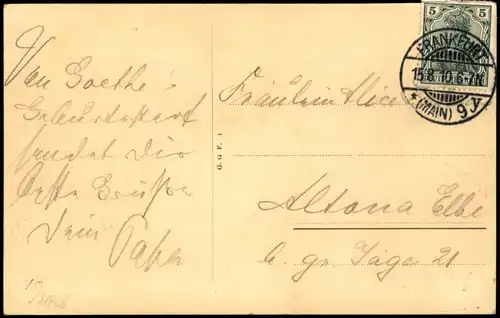 Von Goethe's
Geburtsort
sendet die
beste Grüsse
Dein Papa
G. G F. 1
5 5
FRANKFURT
15.8.10. 6-7N.
* (MAIN) 9
Fräulein Alice
Altona Elbe
b. gr. Jäge 21